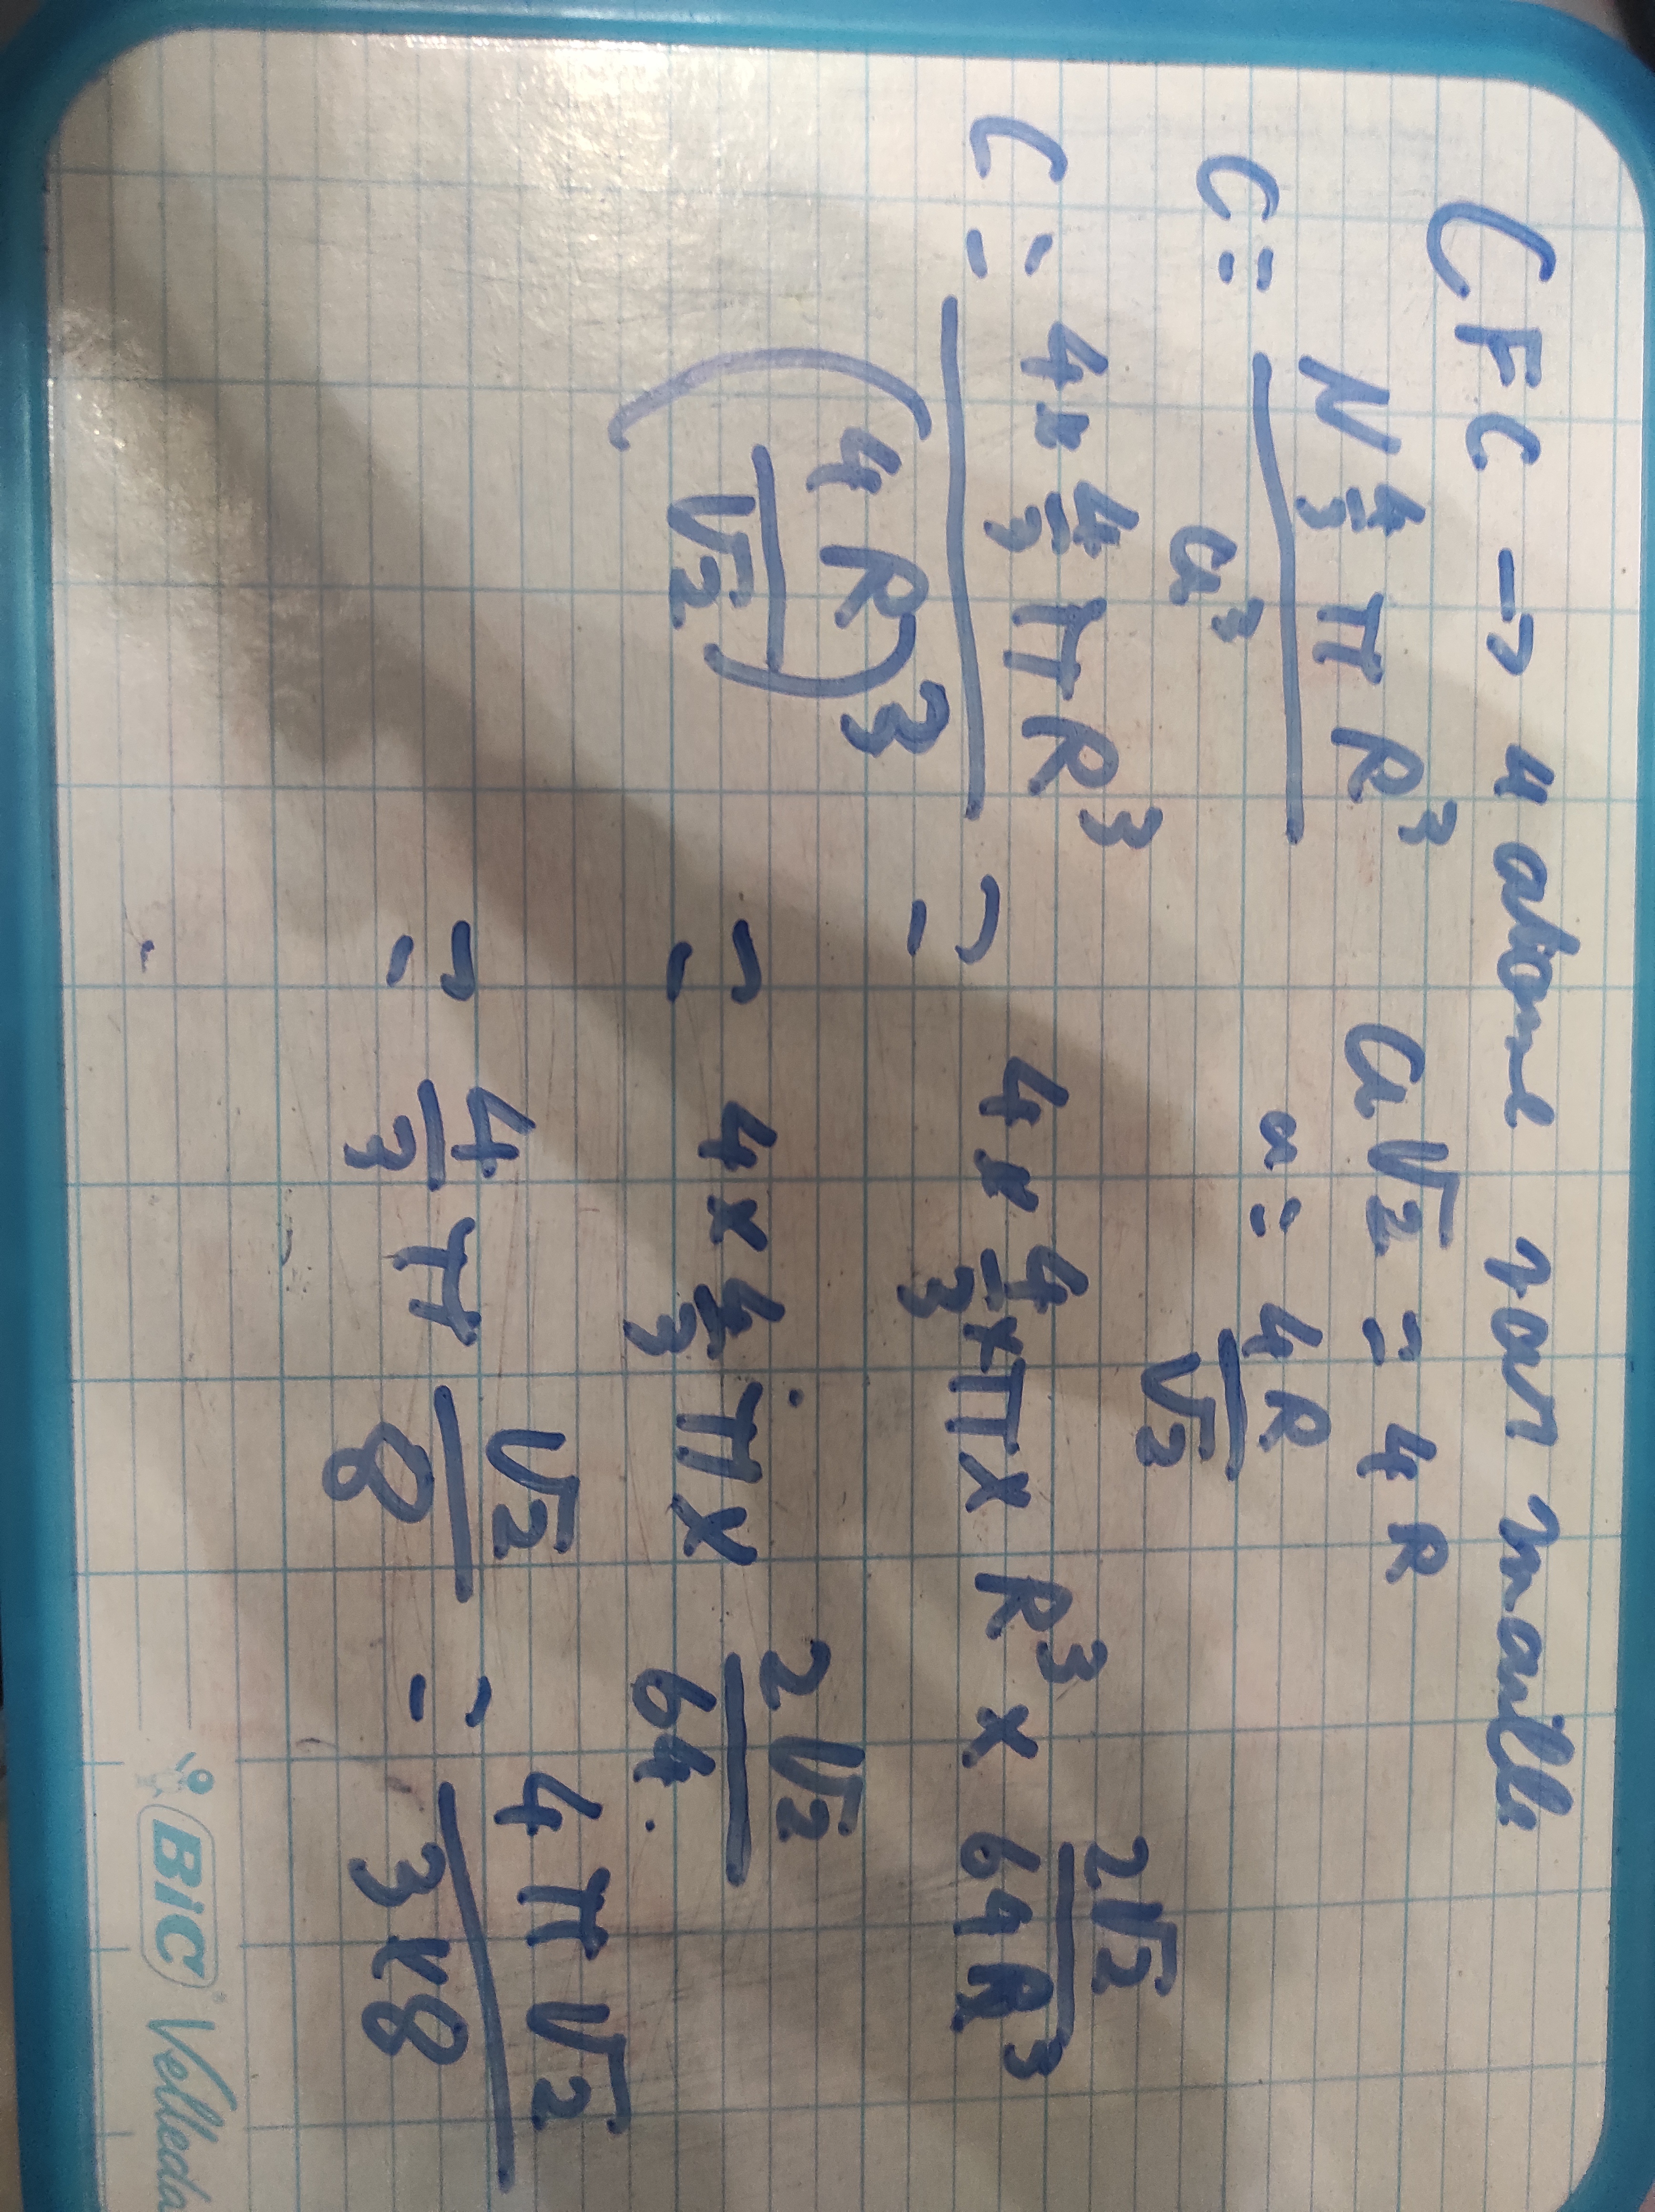 CFC → 4 atome par maille
C = N 4/3 π R³ / a³
a√2 = 4R
a = 4R/√2
C = 4 x 4/3 π R³ / (4R/√2)³ = 4 x 4/3 x π x R³ x 2√2/64R³
= 4 x 4/3 π x 2√2/64
= 4/3 π √2/8 = 4π√2/3x8
BIC Velleda